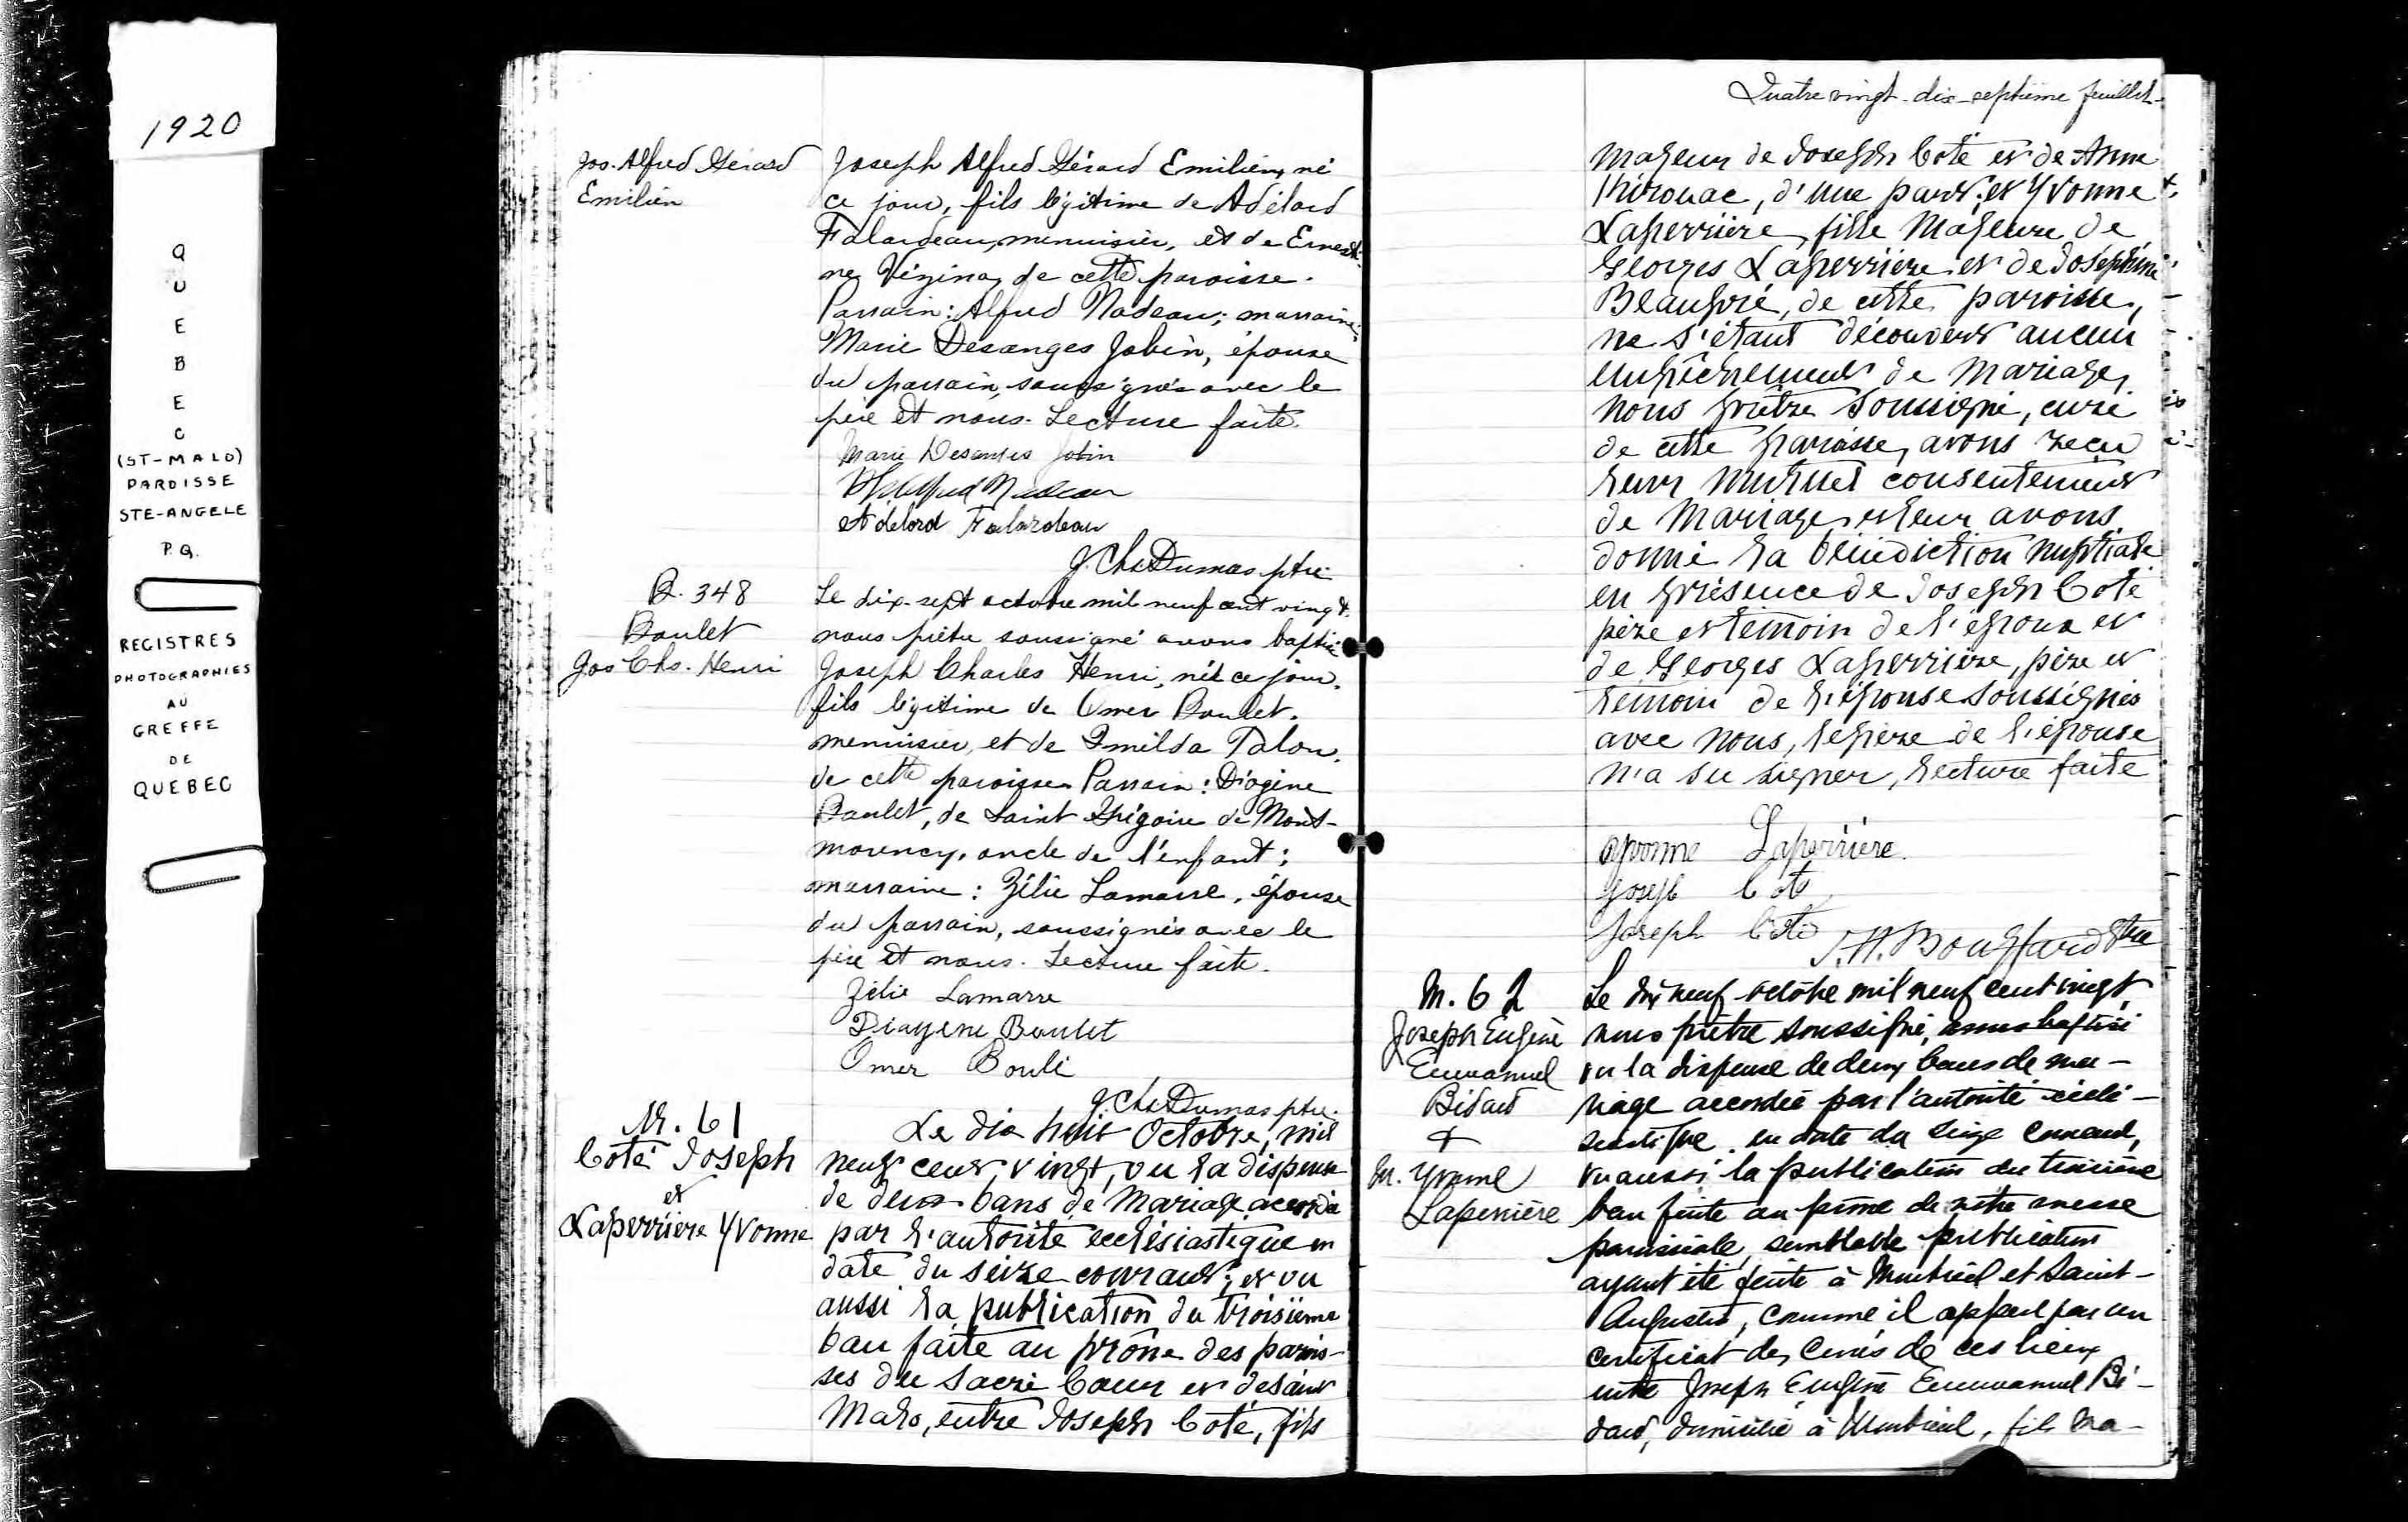 1920
QUEBEC
(ST-MALO)
PAROISSE
STE-ANGELE
P.Q.
REGISTRES
PHOTOGRAPHIES
AU
GREFFE
DE
QUEBEC
Jos. Alfred Gérard
Emilien
Joseph Alfred Gérard Emilien, né
ce jour, fils légitime de Adélard
Falardeau, menuisier, et de Ernesti-
ne Vézina, de cette paroisse.
Parrain: Alfred Nadeau; marraine:
Marie Desanges Jobin, épouse
du parrain, soussignés avec le
père et nous. Lecture faite.
Marie Desanges Jobin
Alfred Nadeau
Adelord Falardeau
J. Chs Dumas ptre
B. 348
Boulet
Jos Chs. Henri
Le dix-sept octobre mil neuf cent vingt.
nous prêtre soussigné avons baptisé
Joseph Charles Henri, né ce jour.
fils légitime de Omer Boulet.
menuisier, et de Imilda Talon.
de cette paroisse. Parrain: Diogène
Boulet, de Saint Grégoire de Mont-
morency. oncle de l'enfant;
marraine: Zélie Lamarre, épouse
du parrain, soussignés avec le
père et nous. Lecture faite.
Zélie Lamarre
Diogène Boulet
Omer Boulé
J. Chs Dumas ptre.
M. 61
Coté Joseph
et
Laperrière Yvonne
Le dix huit Octobre, mil
neuf cent vingt, vu la dispense
de deux bans de Mariage accordée
par l'autorité ecclésiastique en
date du seize courant; et vu
aussi la publication du troisième
ban faite au prône des parois-
ses du Sacré Coeur et de Saint
Malo, entre Joseph Coté, fils
Quatre vingt-dix-septième feuillet-
Majeur de Joseph Coté et de Anne
Kirouac, d'une part; et Yvonne
Laperrière, fille Majeure de
Georges Laperrière et de Joséphine
Beaupré, de cette paroisse,
ne s'étant découvert aucun
empêchement de Mariage,
nous prêtre soussigné, curé
de cette paroisse, avons reçu
leur mutuel consentement
de Mariage et leur avons
donné la bénédiction nuptiale
en présence de Joseph Coté
père et témoin de l'époux et
de Georges Laperrière, père et
témoin de l'épouse soussignés
avec nous, le père de l'épouse
n'a su signer, lecture faite
Yvonne Laperrière.
Joseph Coté
Joseph Coté
Bouffard Ptre
M. 62
Joseph Eugène
Emmanuel
Bidard
+
M. Yvonne
Laperrière
Le dix neuf octobre mil neuf cent vingt
nous prêtre soussigné, avons baptisé
vu la dispense de deux bans de ma-
riage accordée par l'autorité ecclé-
siastique en date du seize courant,
vu aussi la publication du troisième
ban faite au prône de notre messe
paroissiale, semblable publication
ayant été faite à Montréal et Saint-
Augustin, comme il appert par un
certificat des curés de ces lieux
entre Joseph Eugène Emmanuel Bi-
dard, domicilié à Montréal, fils ma-